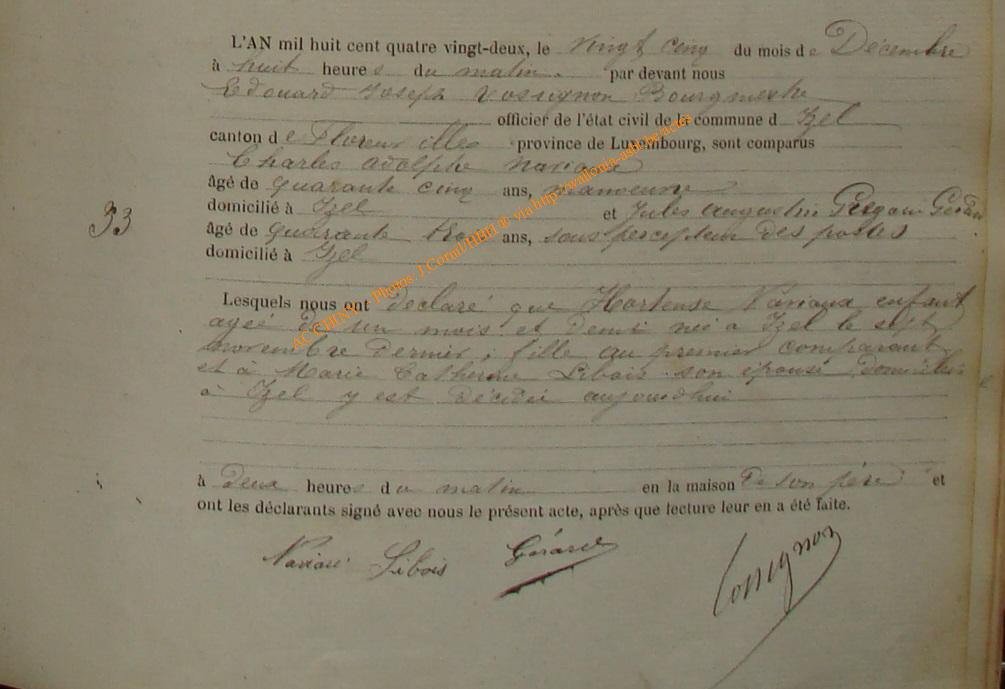 L'AN mil huit cent quatre vingt-deux, le vingt cinq du mois de Décembre
à huit heures du matin par devant nous
Edouard Joseph Rossignon Bourgmestre
officier de l'état civil de la commune d Izel
canton de Florenville province de Luxembourg, sont comparus
Charles Adolphe
âgé de quarante cinq ans, manoeuvre
domicilié à Izel et Jules Augustin
33
âgé de quarante trois ans, sous percepteur des postes
domicilié à Izel
Lesquels nous ont déclaré que Hortense enfant
agée de un mois et demi née à Izel le sept
novembre dernier, fille au premier comparant
et à Marie Catherine Libois son épouse domiciliée
à Izel y est décédée aujourdhui
à deux heures du matin en la maison de son père et
ont les déclarants signé avec nous le présent acte, après que lecture leur en a été faite.
Libois Gérard Rossignon